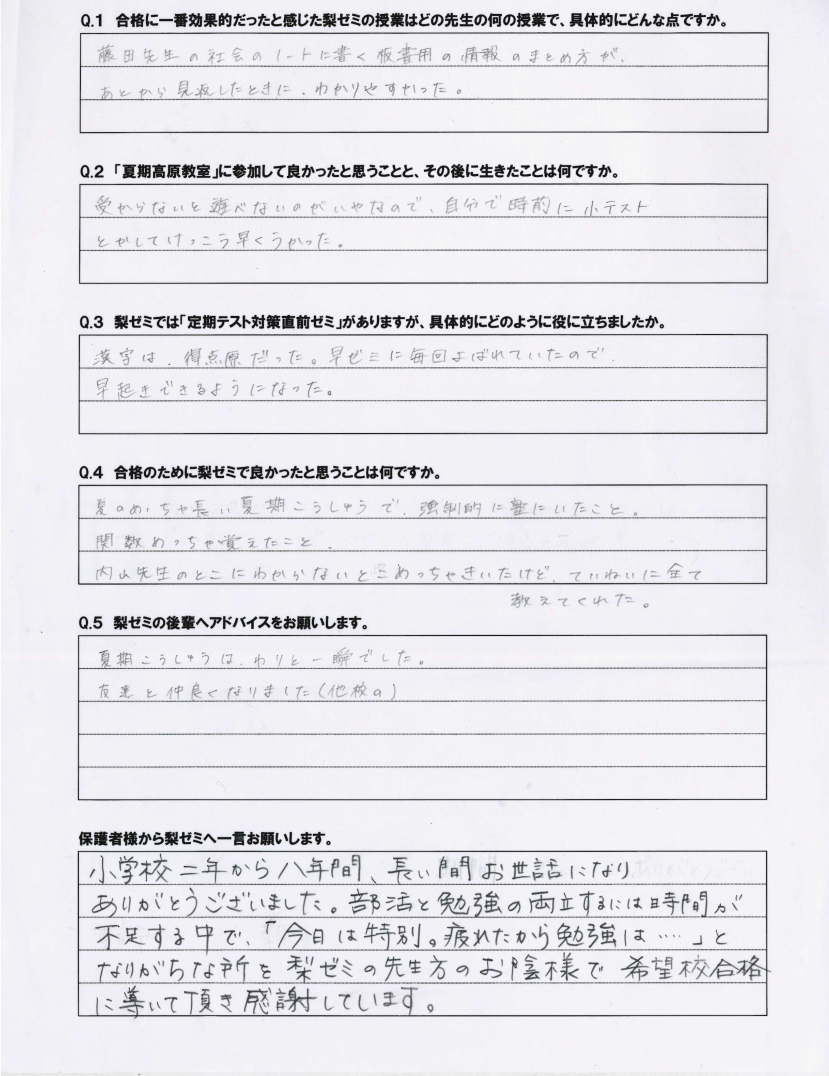 Q.1 合格に一番効果的だったと感じた梨ゼミの授業はどの先生の何の授業で、具体的にどんな点ですか。
藤田先生の社会のノートに書く板書用の情報のまとめ方が、
あとから見返したときに、わかりやすかった。
Q.2 「夏期高原教室」に参加して良かったと思うことと、その後に生きたことは何ですか。
受からないと遊べないのがいやなので、自分で時前に小テスト
とかしてけっこう早くうかった。
Q.3 梨ゼミでは「定期テスト対策直前ゼミ」がありますが、具体的にどのように役に立ちましたか。
漢字は、得点原だった。早ゼミに毎回よばれていたので、
早起きできるようになった。
Q.4 合格のために梨ゼミで良かったと思うことは何ですか。
夏のめっちゃ長い夏期こうしゅうで、強制的に塾にいたこと。
関数めっちゃ覚えたこと、
内山先生のとこにわからないとこめっちゃきいたけど、ていねいに全て
教えてくれた。
Q.5 梨ゼミの後輩へアドバイスをお願いします。
夏期こうしゅうは、わりと一瞬でした。
友達と仲良くなりました(他校の)
保護者様から梨ゼミへ一言お願いします。
小学校二年から八年間、長い間お世話になり
ありがとうございました。部活と勉強の両立するには時間が
不足する中で、「今日は特別。疲れたから勉強は……」と
なりがちな所を梨ゼミの先生方のお陰様で希望校合格
に導いて頂き感謝しています。